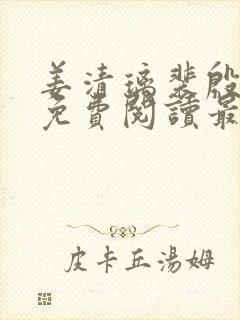 姜清璃裴殷
免費閱讀最
皮卡丘湯姆